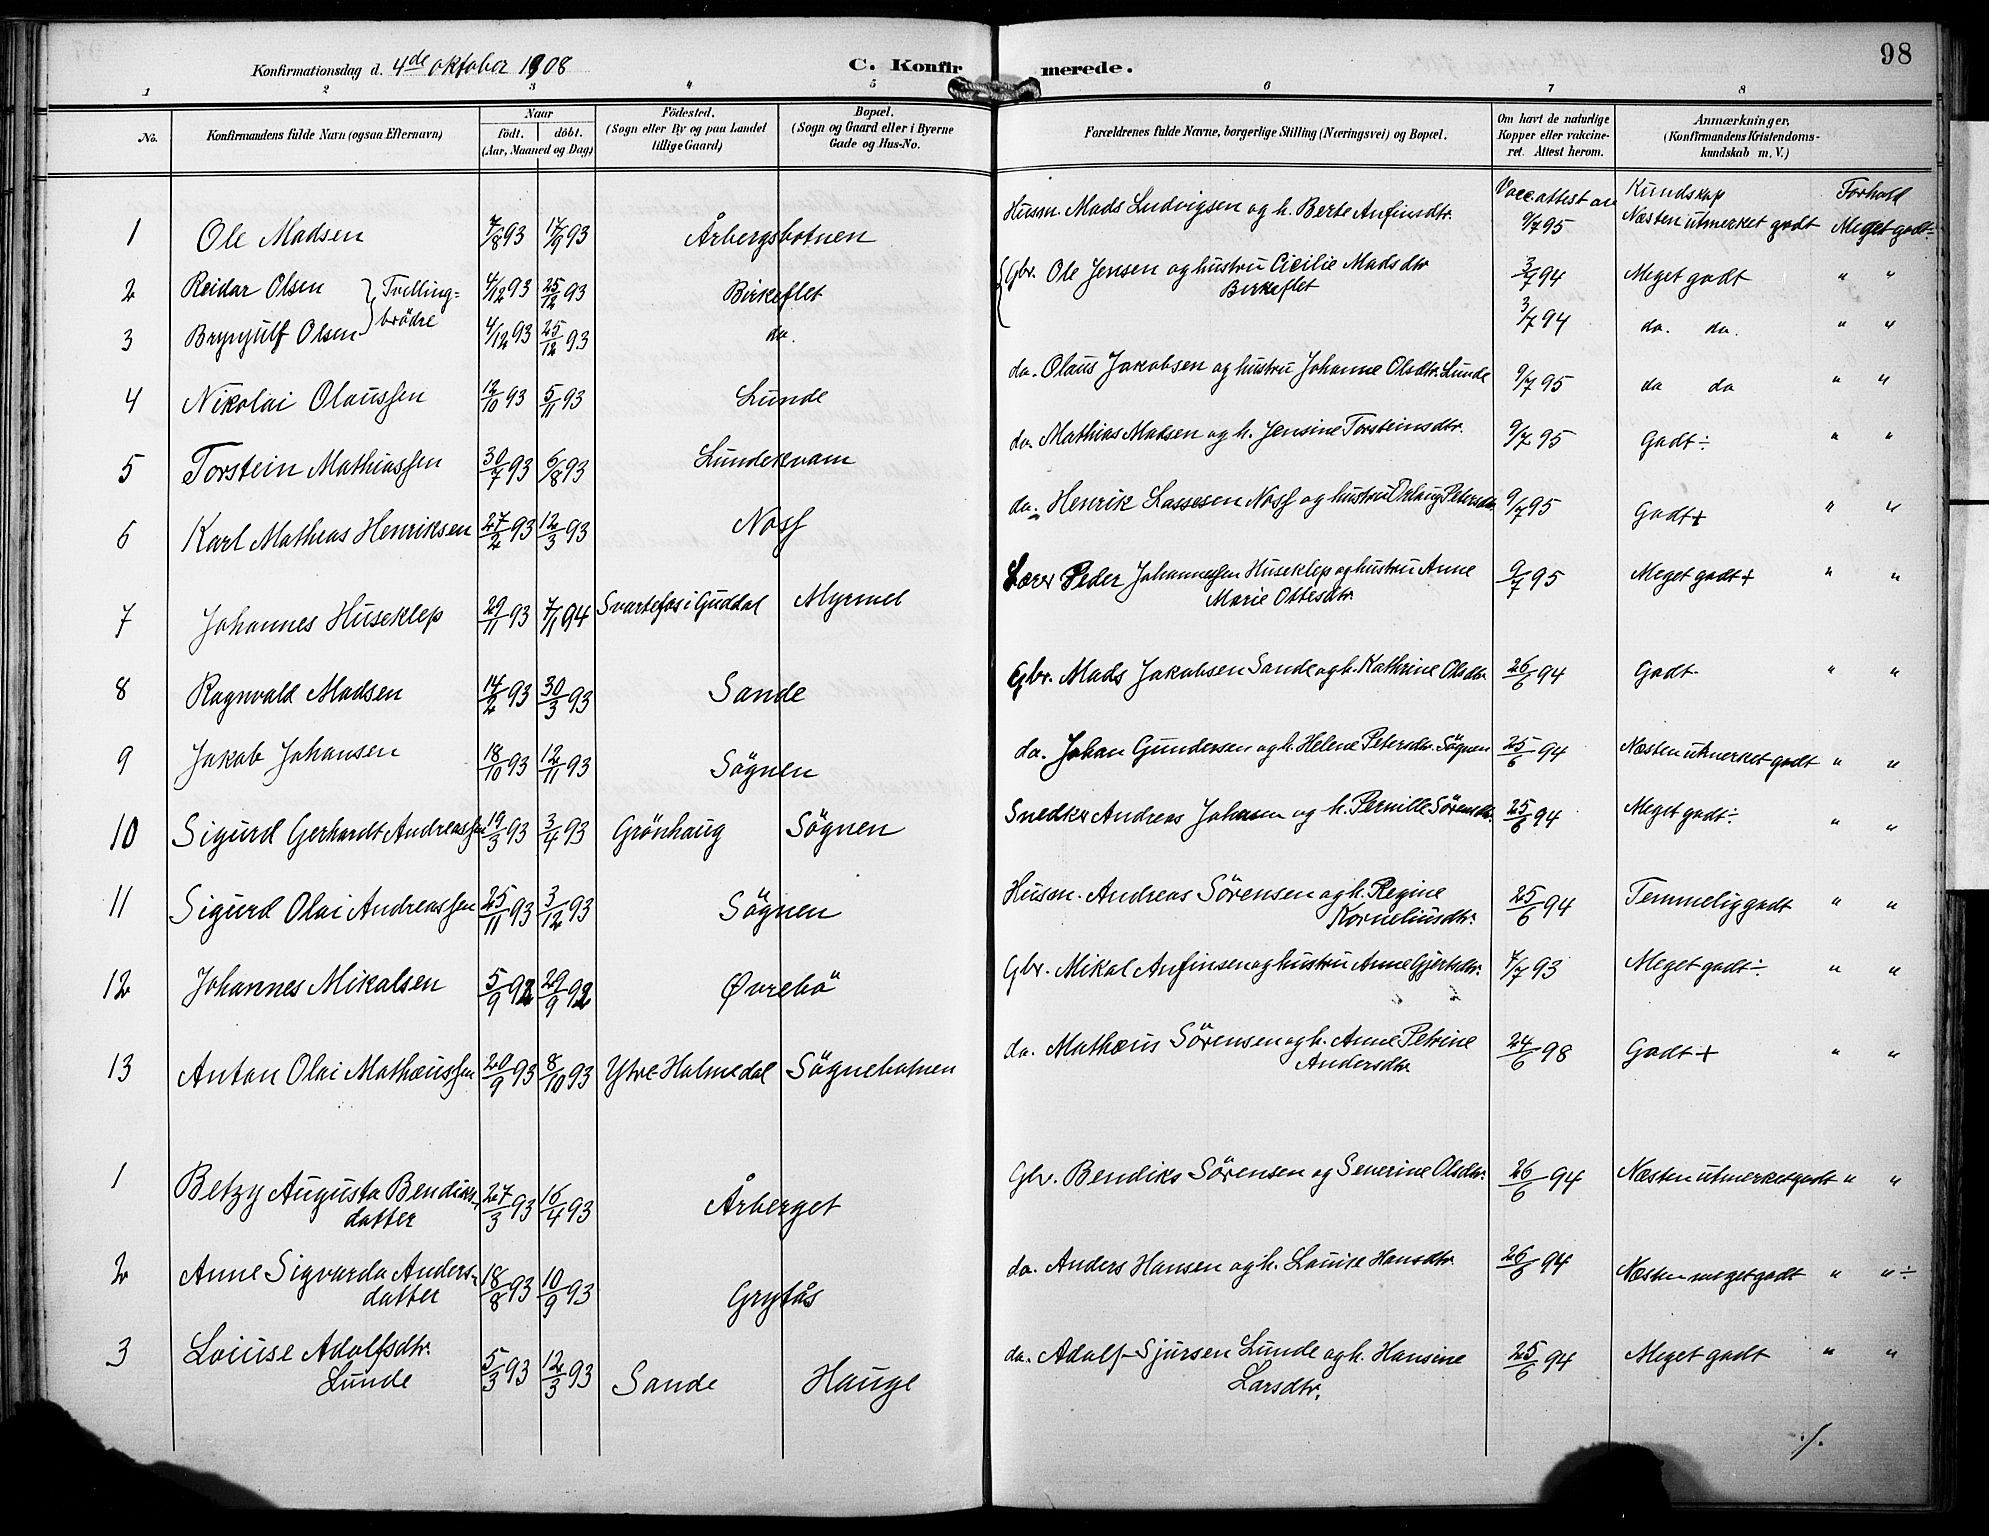 98
Konfirmationsdag d. 4de oktober 1908 C. Konfirmerede.
1 2 3 4 5 6 7 8
No. Konfirmandens fulde Navn (ogsaa Efternavn) Naar födt. döbt. (Aar, Maaned og Dag) Födested. (Sogn eller By og paa Landet tillige Gaard) Bopæl. (Sogn og Gaard eller i Byerne Gade og Hus-No. Forældrenes fulde Navne, borgerlige Stilling (Næringsvei) og Bopæl. Om havt de naturlige Kopper eller vakcineret. Attest herom. Anmærkninger, (Konfirmandens Kristendomskundskab m. V.)
Vacc.attest av Kundskap Forhold
1 Ole Madsen 7/8 93 17/9 93 Årbergsbotnen Husm. Mads Ludvigsen og h. Berte Anfinsdtr. 9/7 95 Næsten utmerket godt Meget godt÷
2 Reidar Olsen } Tvilling= 4/12 93 25/12 93 Birkeflet { Gbr. Ole Jensen og hustru Cicilie Madsdtr 3/7 94 Meget godt " "
Birkeflet
3 Brynjulf Olsen } brödre 4/12 93 25/12 93 do. 3/7 94 do. do. " "
4 Nikolai Olaussen 12/10 93 5/11 93 Lunde do. Olaus Jakobsen og hustru Johanne Olsdtr. Lunde 9/7 95 do do " "
5 Torstein Mathiassen 30/7 93 6/8 93 Lundekvam do. Mathias Madsen og h. Jensine Torsteinsdtr. 9/7 95 Godt÷ " "
6 Karl Mathias Henriksen 27/2 93 12/3 93 Nosf do. Henrik Lassesen Nosf og hustru Petersdtr 9/7 95 Godt+ " "
7 Johannes Huseklep 29/11 93 7/1 94 Svartefos i Guddal Myrmel Lærer Peder Johannessen Huseklep og hustru Anne 9/7 95 Meget godt+ " "
Marie Ottesdtr.
8 Ragnvald Madsen 14/2 93 30/3 93 Sande Gbr. Mads Jakobsen Sande og h. Kathrine Olsdtr. 26/6 94 Godt " "
9 Jakob Johansen 18/10 93 12/11 93 Sögnen do. Johan Gundersen og h. Helene Petersdtr. Sögnen 25/6 94 Næsten utmerket godt " "
10 Sigurd Gerhardt Andreassen 19/3 93 3/4 93 Grönhaug Sögnen Snedker Andreas Johansen og h. Pernille Sörensdtr. 25/6 94 Meget godt÷ " "
11 Sigurd Olai Andreassen 25/11 93 3/12 93 Sögnen Husm. Andreas Sörensen og h. Regine 25/6 94 Temmelig godt " "
Korneliusdtr.
12 Johannes Mikalsen 5/9 92 29/9 92 Øvrebö Gbr. Mikal Anfinsen og hustru Anne Gjertsdtr. 4/7 93 Meget godt÷ " "
13 Anton Olai Mathæussen 20/9 93 8/10 93 Ytre Holmedal Sögnebotnen do. Mathæus Sörensen og h. Anne Petrine 24/6 98 Godt+ " "
Andersdtr.
1 Betzy Augusta Bendiks- 27/3 93 16/4 93 Årberget Gbr. Bendiks Sörensen og Severine Olsdtr. 26/6 94 Næsten utmerket godt " "
datter
2 Anne Sigvarda Anders- 18/8 93 10/9 93 Grytås do. Anders Hansen og h. Louise Hansdtr. 26/6 94 Næsten meget godt " "÷
datter
3 Louise Adolfsdtr. 5/3 93 12/3 93 Sande Hauge do. Adolf Sjursen Lunde og h. Hansine 25/6 94 Meget godt " "
Lunde Larsdtr.
./.